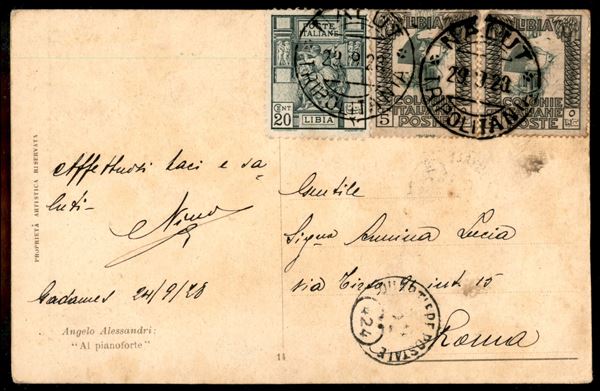 POSTE
ITALIANE
CENT
20
LIBIA
LIBIA
COLONIE
ITALIANE
POSTE
5
LIBIA
COLONIE
ITALIANE
POSTE
5
NALUT
29.9.28
(TRIPOLITANIA)
NALUT
29.9.28
(TRIPOLITANIA)
PROPRIETÀ ARTISTICA RISERVATA
Affettuosi baci e sa-
luti-
Nino
Gadames 24/9/28
Angelo Alessandri:
"Al pianoforte"
11
Gentile
Sigra Annina Lucia
via int. 15
Roma
PORTIERE POSTALE
424